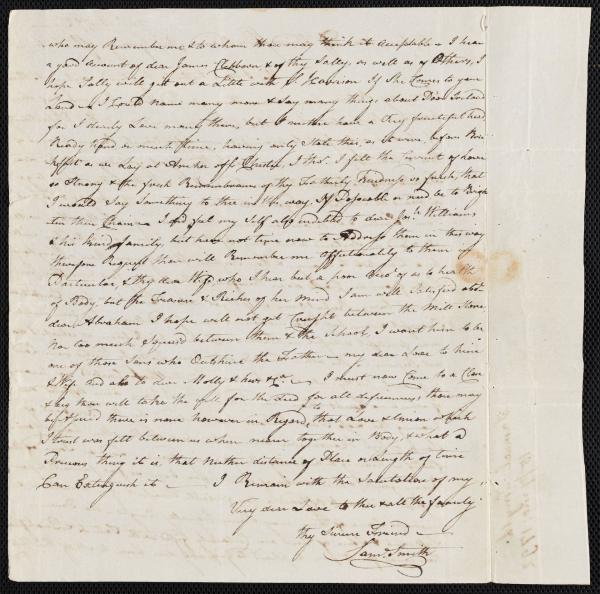 who may Remember me & to whom thou may think it acceptable - I hear
a good account of dear James & thy Sally, as well as of Others, I
hope Sally will get out a little with S Harrison If She Comes to your
Land - I Could name many more & Say many things about Dear Ireland
for I dearly Love many there, but I neither have a very fruitful head
Ready hand or much time, having only State this, as it were, before Breakfast
as we Lay at Anchor off Chester, I thot. I felt the Current of Love
so Strong & the fresh Remembrance of thy Fatherly Kindness so fresh, that
I must Say Something to thee in this way, If Possible or need be to Brighten
the Chain - I feel my Self also indebted to dear Josh. Williams
& his kind family, but have not time now to Address them in this way
therefore Request thou will Remember me affectionately to them in
Particular & thy dear Wife who I hear but a poor Acct. of as to her
of Body, but the Treasure & Riches of her Mind I am well Satisfied abot.
dear Abraham I hope will not get between the Mill Stones
nor too much between them & the School, I want him to be
one of those Sons who Outshine the Father - my dear Love to him
& Wife and also to dear Molly & hers &ca. - I must now Come to a Close
& beg thou will take the will for the Deed for all defficiences thou may
be assured there is none however in Regard to that Love & Union which
I trust was felt between us when near together in Body, & what a
Precious thing it is, that Neither distance of Place or Length of time
Can Extinguish it - I Remain with the Salutation of my
Very dear Love to thee & all the family
thy Sincere Friend
Saml. Smith